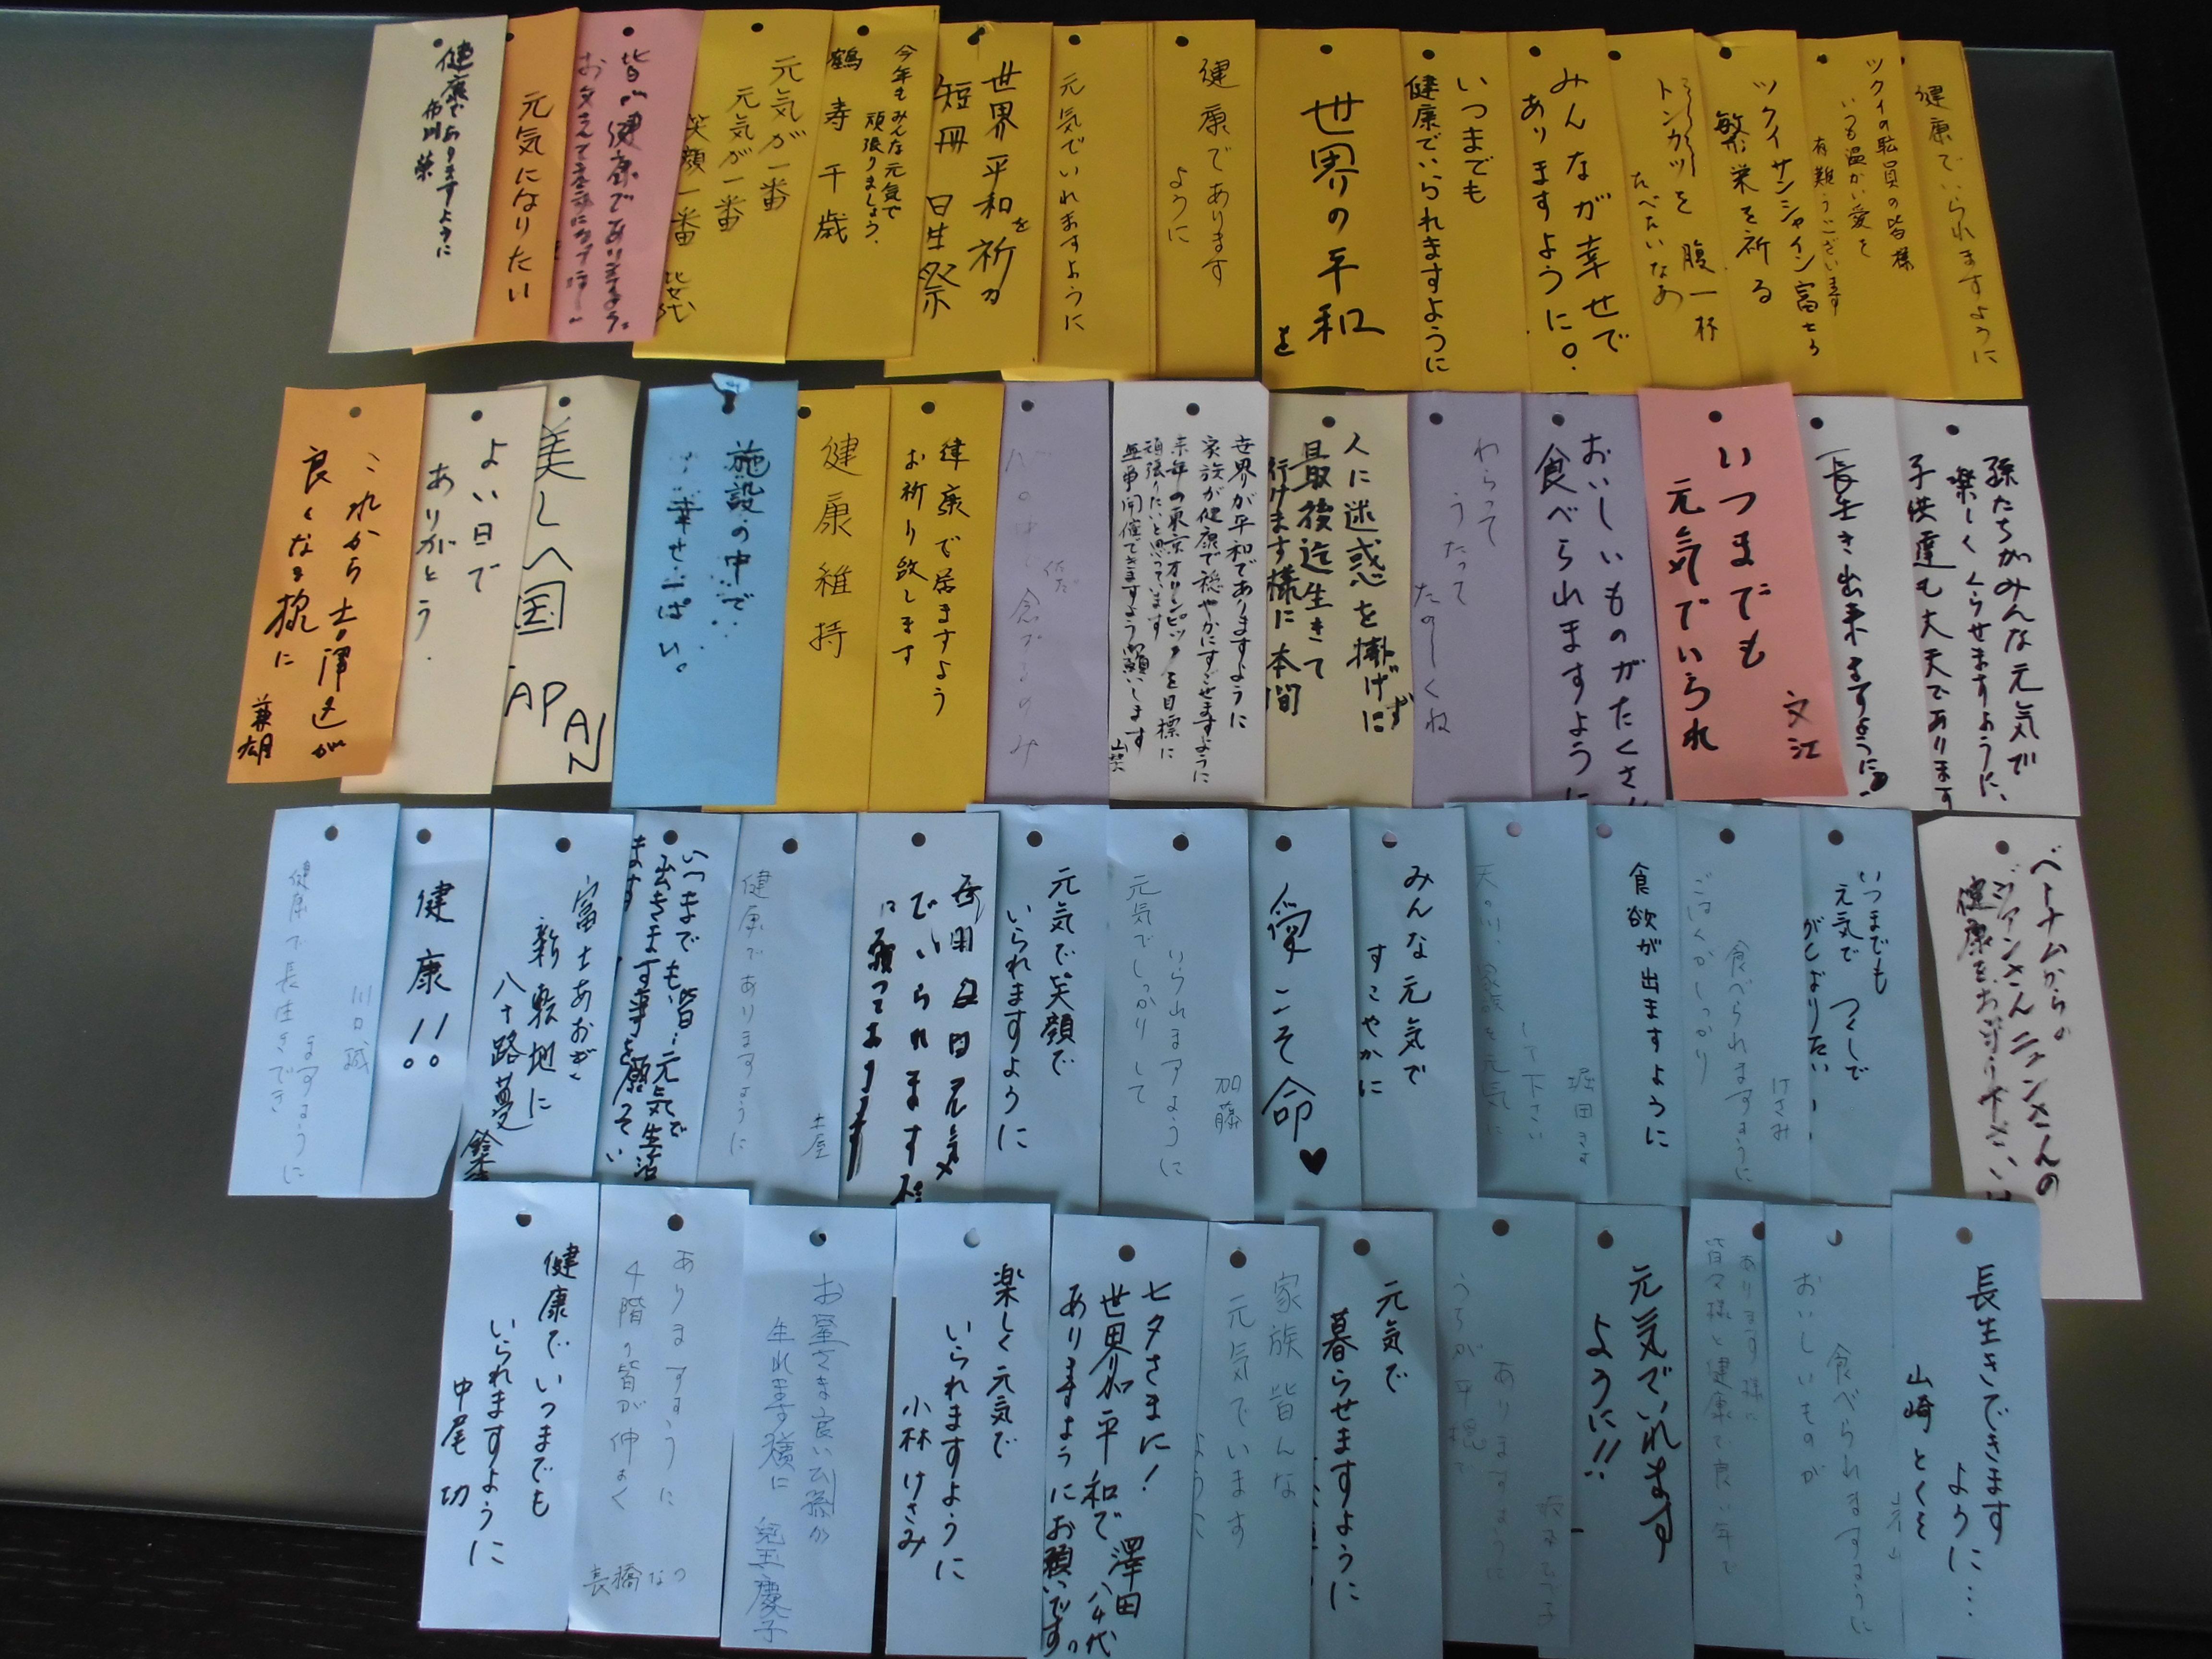 健康でありますように
元気になりたい
皆が健康であります
元気が一番
元気が一番
笑顔一番
今年もみんな元気で
頑張りましょう。
鶴寿千歳
世界平和を祈る
短冊
元気でいれますように
健康であります
ように
世界の平和
を
いつまでも
健康でいられますように
みんなが幸せで
ありますように。
トンカツを腹一杯
たべたいなあ
ツクイサンシャイン富士の
繁栄を祈る
ツクイの職員の皆様
いつも温かい愛を
有難うございます
健康でいられますように
これから
良くなる様に
兼雄
よい日で
ありがとう.
美しい国
JAPAN
施設の中で
幸せ一ぱい。
健康維持
健康で居ますよう
お祈り致します
世界が平和でありますように
家族が健康で穏やかにすごせますように
来年の東京オリンピックを目標に
頑張りたいと思っています
無事開催できますようお願いします
人に迷惑を掛げずに
最後迄生きて
行けます様に 本間
わらって
うたって
たのしくね
おいしいものがたくさん
食べられますように
いつまでも
元気でいられ
文江
長生き出来ますように
孫たちがみんな元気で
楽しくくらせますように、
子供達も大丈夫であります
健康で長生きでき
ますように
川口誠
健康!!
富士あおぎ
新転地に
八十路
いつまでも皆元気で生活
出きます事を願ってい
ます
健康でありますように
土屋
毎日元気
でいられます様
に願っております
元気で笑顔で
いられますように
元気でしっかりして
いられますように
加藤
愛こそ命♥
みんな元気で
すこやかに
天の川、家族を元気に
して下さい
堀田きよ
食欲が出ますように
ごはんがしっかり
食べられますように
けさみ
いつまでも
元気で つくしで
がんばりたい
ベトナムからの
ジアンさん ニャンさんの
健康をお守り下さい
健康でいつまでも
いられますように
中尾 功
4階の皆が仲よく
ありますように
長橋なつ
お星さま良い
生れます様に
兒玉慶子
楽しく元気で
いられますように
小林けさみ
七夕さまに!
世界が平和で
ありますようにお願いです。
澤田
八代
家族皆んな
元気でいます
ように
元気で
暮らせますように
うちが平穏で
ありますように
元気でいれます
ように!!
皆々様と健康で良い年で
あります様に
おいしいものが
食べられますように
長生きできます
ように…
山崎とくを